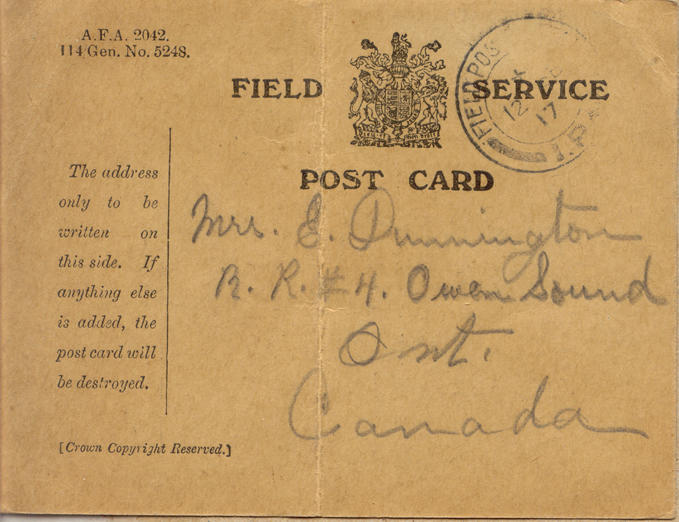 A.F.A. 2042.
114 Gen. No. 5248.
FIELD SERVICE
POST CARD
FIELD POS
12
17
The address
only to be
written on
this side. If
anything else
is added, the
post card will
be destroyed.
Mrs. E. Dunnington
R. R. #4. Owen Sound
Ont.
Canada
[Crown Copyright Reserved.]